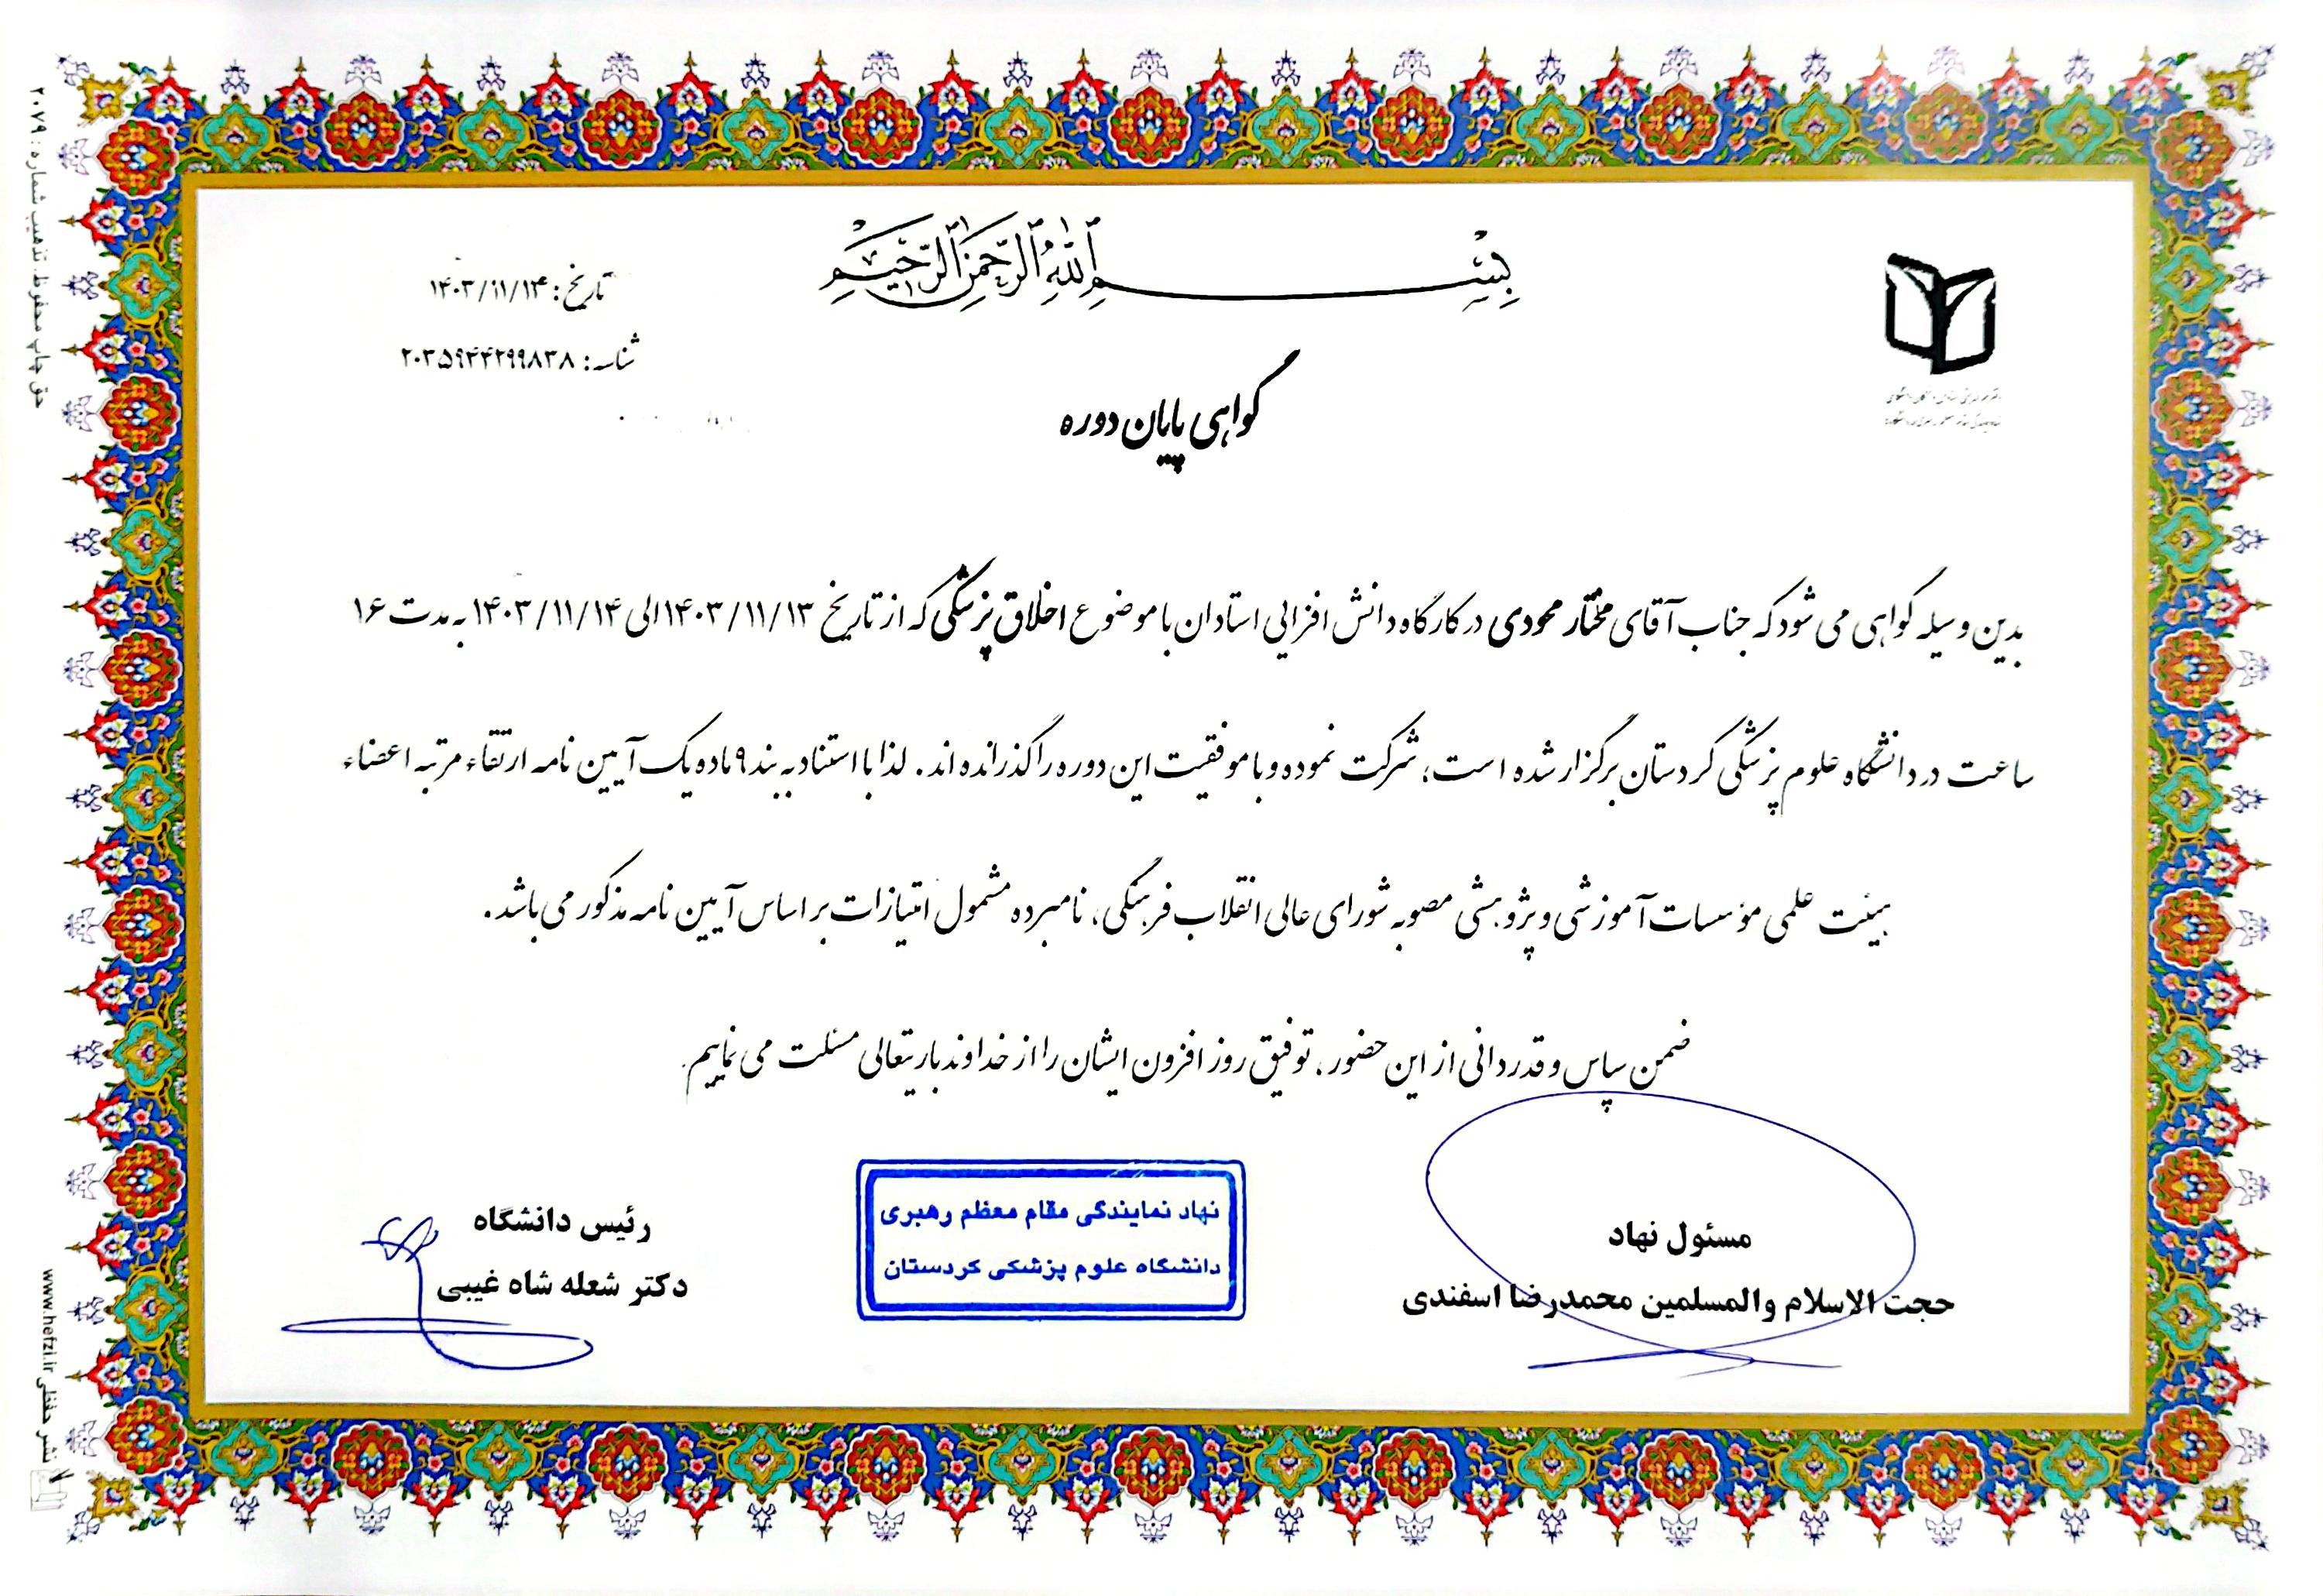 بسم الله الرحمن الرحیم
تاریخ: ۱۴۰۳/۱۱/۱۴
شناسه: ۲۰۳۵۹۴۴۲۹۹۸۳۸
گواهی پایان دوره
بدین وسیله گواهی می شود که جناب آقای مختار محمودی در کارگاه دانش افزایی استادان با موضوع اخلاق پزشکی که از تاریخ ۱۴۰۳/۱۱/۱۳ الی ۱۴۰۳/۱۱/۱۴ به مدت ۱۶
ساعت در دانشگاه علوم پزشکی کردستان برگزار شده است، شرکت نموده و با موفقیت این دوره را گذرانده اند. لذا با استناد به بند ۹ ماده یک آیین نامه ارتقاء مرتبه اعضاء
هیئت علمی مؤسسات آموزشی و پژوهشی مصوبه شورای عالی انقلاب فرهنگی، نامبرده مشمول امتیازات بر اساس آیین نامه مذکور می باشد.
ضمن سپاس و قدردانی از این حضور، توفیق روز افزون ایشان را از خداوند باریتعالی مسئلت می نماییم.
مسئول نهاد
حجت الاسلام والمسلمین محمدرضا اسفندی
نهاد نمایندگی مقام معظم رهبری
دانشگاه علوم پزشکی کردستان
رئیس دانشگاه
دکتر شعله شاه غیبی
حق چاپ محفوظ، تذهیب شماره: ۲۰۷۹
نشر حفظی www.hefzi.ir